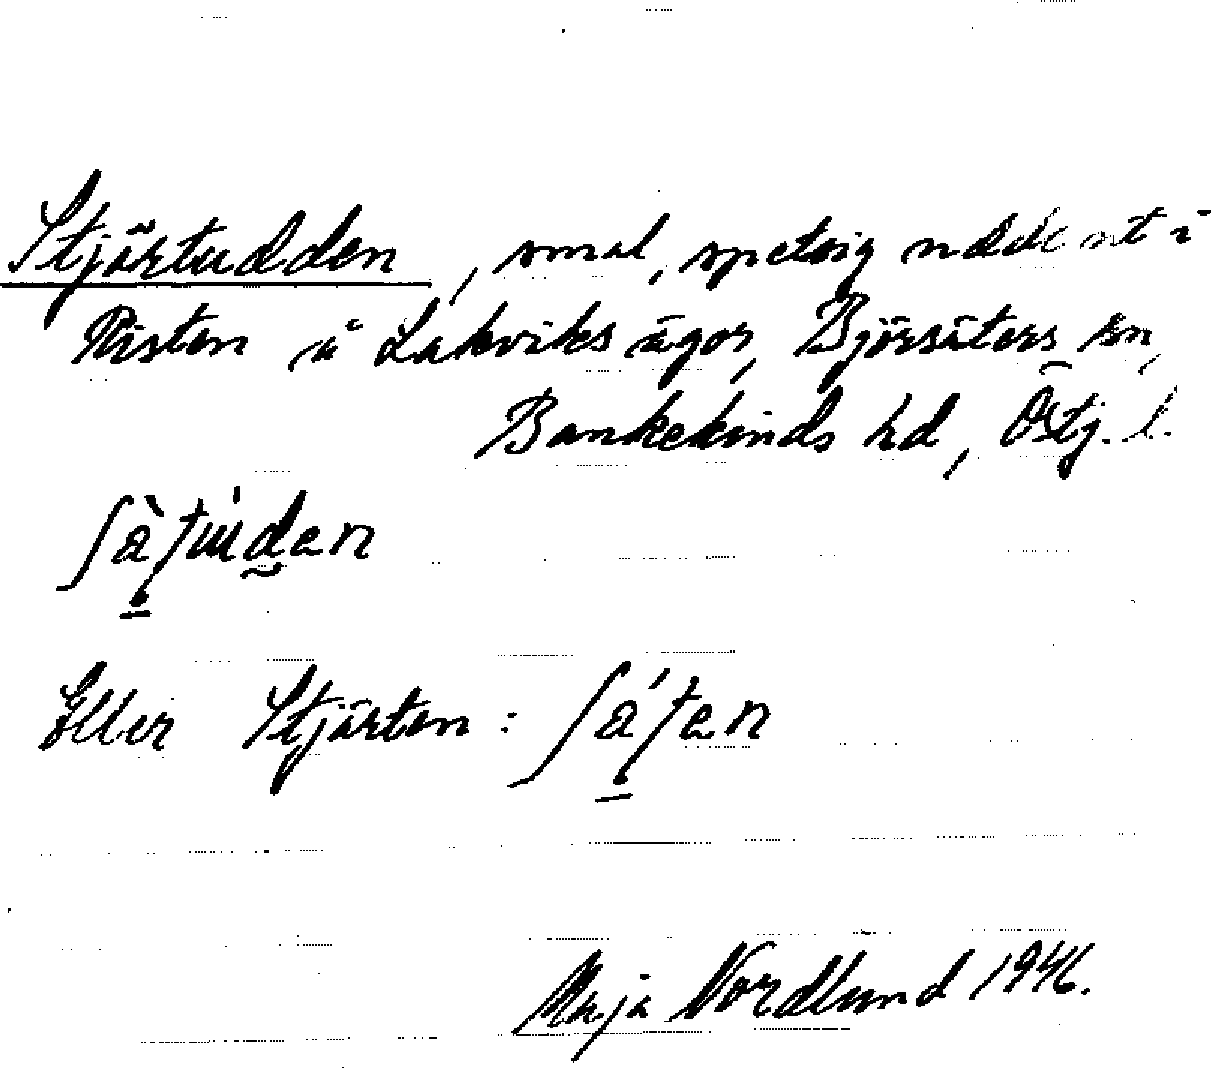 Stjärtudden, smal, spetsig udde ut i
Risten å Lakviks ägor, Björsäters sn,
Bankekinds hd, Östg. l.
Eller Stjärten:
Maja Nordlund 1946.